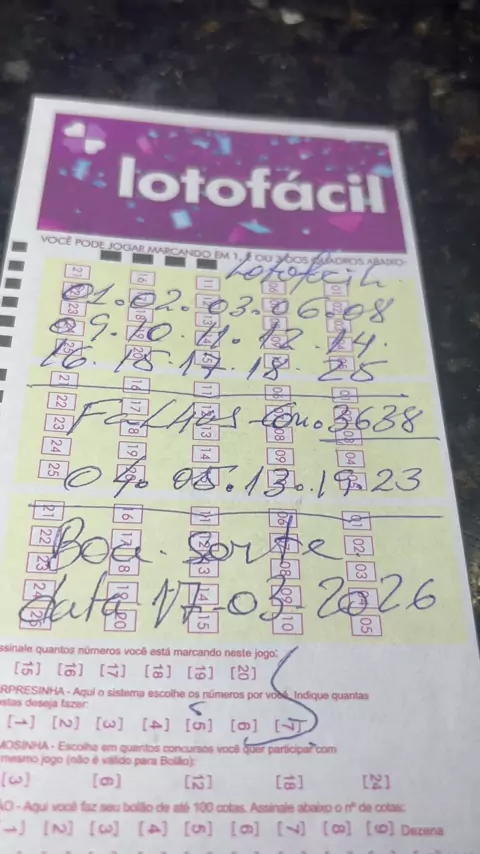 lotofácil
VOCÊ PODE JOGAR MARCANDO EM 1, 2 OU 3 DOS QUADROS ABAIXO
Lotofacil
01.02.03.06.08
09.10.11.12.14.
16.15.17.18.25
Falhas con.3638
04.05.13.19.23
Boa.sorte
data 17-03-2026
ssinale quantos números você está marcando neste jogo:
[15] [16] [17] [18] [19] [20]
RPRESINHA - Aqui o sistema escolhe os números por você. Indique quantas
stas deseja fazer:
[1] [2] [3] [4] [5] [6] [7]
MOSINHA - Escolha em quantos concursos você quer participar com
mesmo jogo (não é válido para Bolão):
[3] [6] [12] [18] [24]
ÃO - Aqui você faz seu bolão de até 100 cotas. Assinale abaixo o nº de cotas:
[1] [2] [3] [4] [5] [6] [7] [8] [9] Dezena